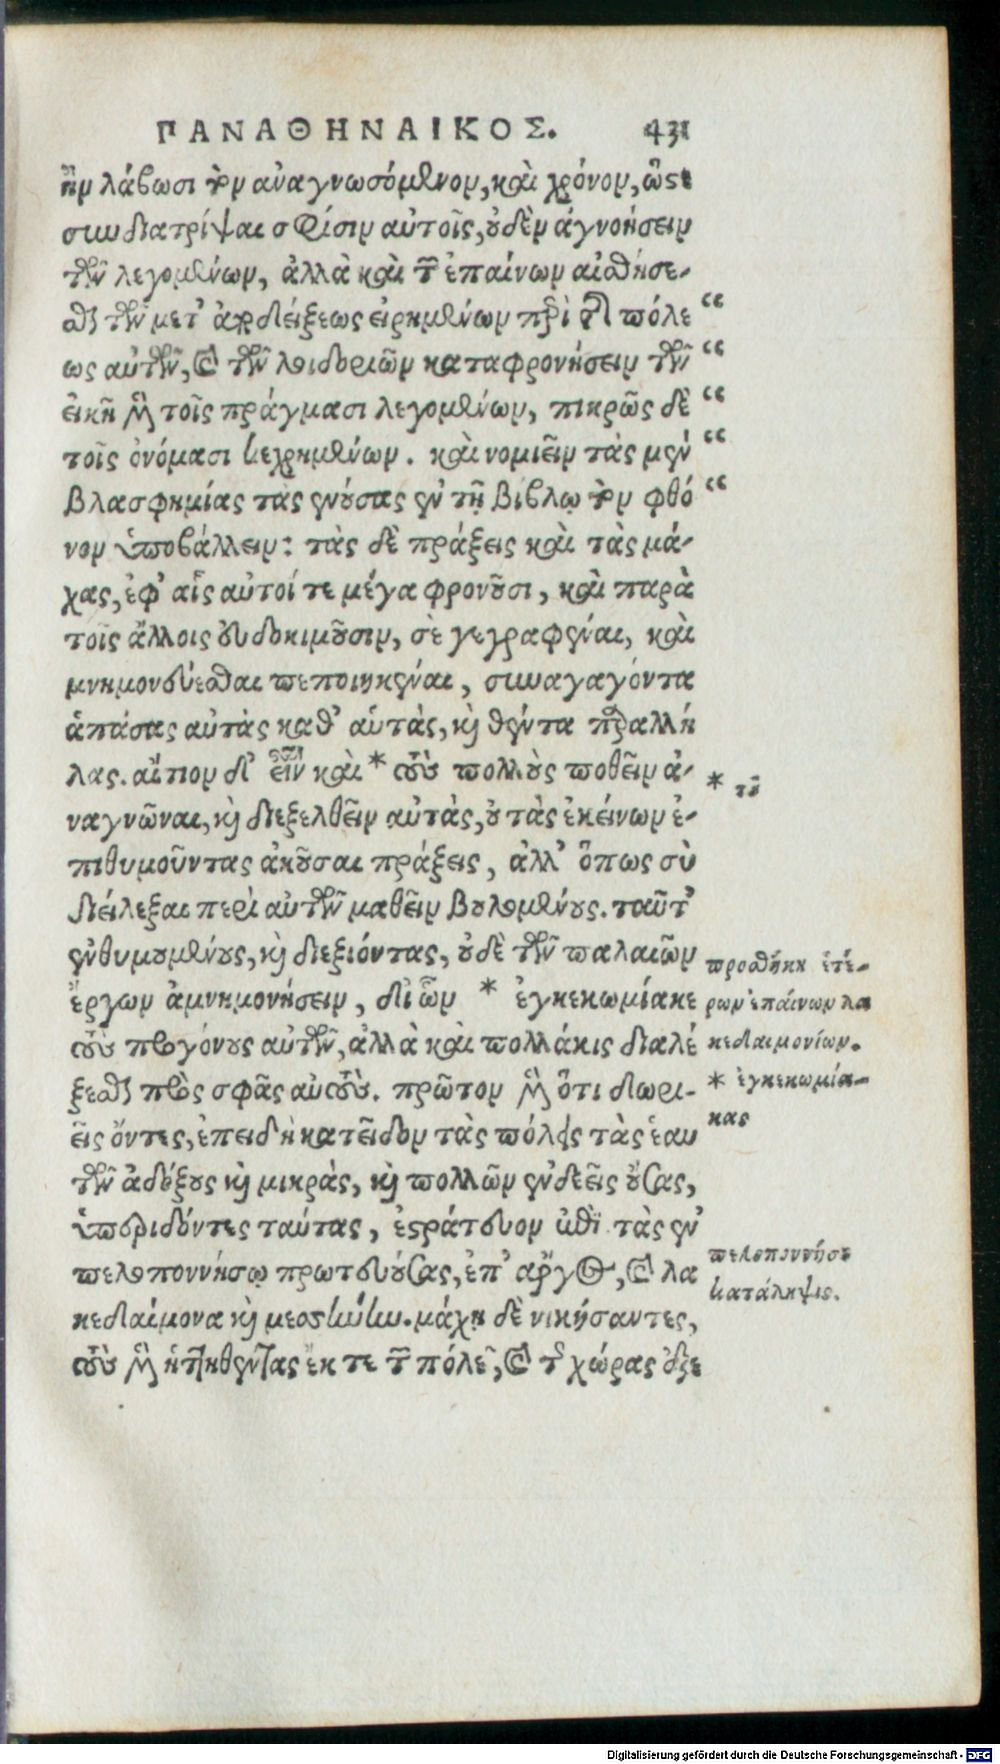 ΠΑΝΑΘΗΝΑΙΚΟΣ. 431
ἢν λάβωσι τὸν ἀναγνωσόμενον, καὶ χρόνον, ὥστε
συνδιατρίψαι σφίσιν αὐτοῖς, οὐδὲν ἀγνοήσειν
τῶν λεγομένων, ἀλλὰ καὶ τῶν ἐπαίνων αἰσθήσε-
σθαι τῶν μετ' ἀποδείξεως εἰρημένων περὶ τῆς πόλε “
ως αὐτῶν, καὶ τῶν λοιδοριῶν καταφρονήσειν τῶν “
εἰκῆ μὲν τοῖς πράγμασι λεγομένων, πικρῶς δὲ “
τοῖς ὀνόμασι κεχρημένων. καὶ νομιεῖν τὰς μὲν “
βλασφημίας τὰς ἐνούσας ἐν τῇ βίβλῳ τὸν φθό “
νον ὑποβάλλειν: τὰς δὲ πράξεις καὶ τὰς μά-
χας, ἐφ' αἷς αὐτοί τε μέγα φρονοῦσι, καὶ παρὰ
τοῖς ἄλλοις εὐδοκιμοῦσιν, σὲ γεγραφέναι, καὶ
μνημονεύεσθαι πεποιηκέναι, συναγαγόντα
ἁπάσας αὐτὰς καθ' αὑτὰς, καὶ θέντα παραλλή
λας. αἴτιον δ' εἶναι καὶ * τοὺς πολλοὺς ποθεῖν ἀ-
* τοῦ
ναγνῶναι, καὶ διεξελθεῖν αὐτὰς, οὐ τὰς ἐκείνων ἐ-
πιθυμοῦντας ἀκοῦσαι πράξεις, ἀλλ' ὅπως σὺ
διείλεξαι περὶ αὐτῶν μαθεῖν βουλομένους. ταῦτ'
ἐνθυμουμένους, καὶ διεξιόντας, οὐδὲ τῶν παλαιῶν
ἔργων ἀμνημονήσειν, δι' ὧν * ἐγκεκωμίακε
τοὺς προγόνους αὐτῶν, ἀλλὰ καὶ πολλάκις διαλέ
ξεσθαι πρὸς σφᾶς αὐτούς. πρῶτον μὲν ὅτι δωρι-
εῖς ὄντες, ἐπειδὴ κατεῖδον τὰς πόλεις τὰς ἑαυ
τῶν ἀδόξους καὶ μικρὰς, καὶ πολλῶν ἐνδεεῖς οὔσας,
ὑπεριδόντες ταύτας, ἐστράτευον ἐπὶ τὰς ἐν
πελοποννήσῳ πρωτευούσας, ἐπ' ἄργος, καὶ λα
κεδαίμονα καὶ μεσσήνην. μάχῃ δὲ νικήσαντες,
τοὺς μὲν ἡττηθέντας ἔκ τε τῶν πόλεων, καὶ τῆς χώρας ἐξε
προσθήκη ἑτέ-
ρων ἐπαίνων λα
κεδαιμονίων.
* ἐγκεκωμία-
κας
πελοποννήσου
κατάληψις.
Digitalisierung gefördert durch die Deutsche Forschungsgemeinschaft - DFG